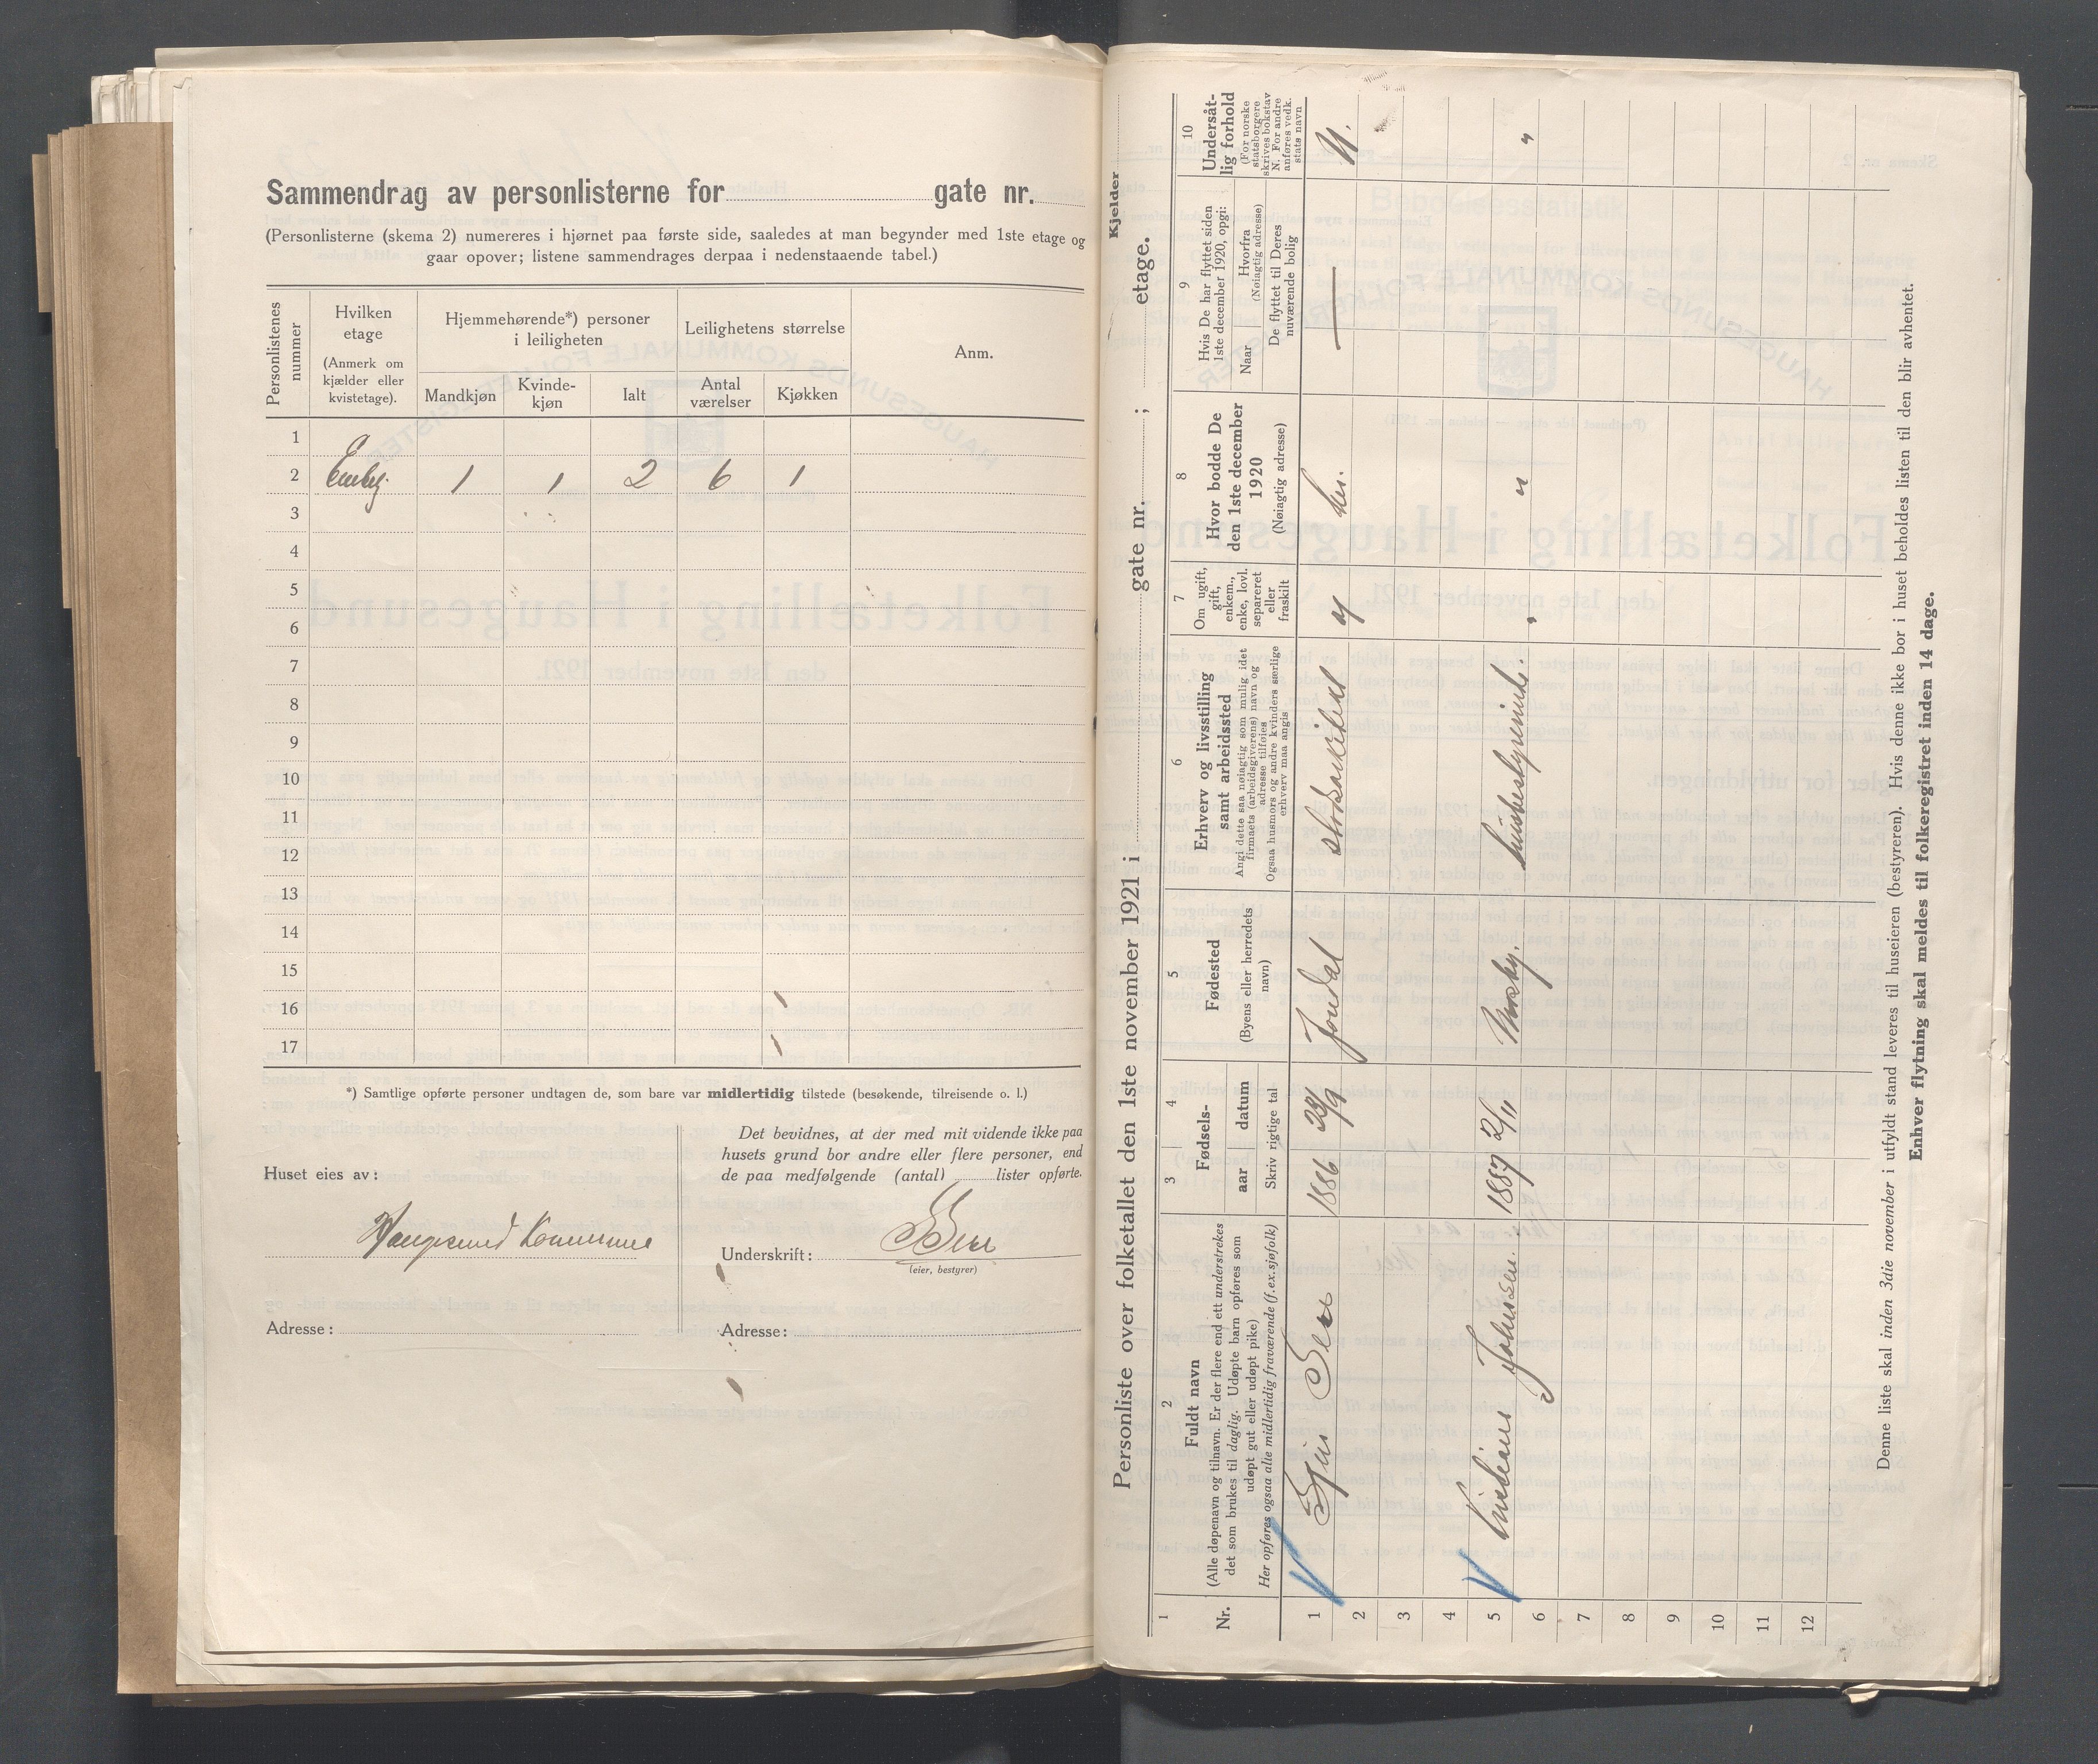 Sammendrag av personlisterne for gate nr.
(Personlisterne (skema 2) numereres i hjørnet paa første side, saaledes at man begynder med 1ste etage og
gaar opover; listene sammendrages derpaa i nedenstaaende tabel.)
Personlistenes nummer
Hvilken etage
(Anmerk om kjælder eller kvistetage).
Hjemmehørende*) personer i leiligheten
Mandkjøn
Kvindekjøn
Ialt
Leilighetens størrelse
Antal værelser
Kjøkken
Anm.
1
2 1 1 2 6 1
3
4
5
6
7
8
9
10
11
12
13
14
15
16
17
*) Samtlige opførte personer undtagen de, som bare var midlertidig tilstede (besøkende, tilreisende o. l.)
Huset eies av:
Haugesund Kommune
Adresse:
Det bevidnes, at der med mit vidende ikke paa
husets grund bor andre eller flere personer, end
de paa medfølgende (antal) lister opførte.
Underskrift:
(eier, bestyrer)
Adresse:
Kjelder
Personliste over folketallet den 1ste november 1921 i gate nr. ; etage.
1
Nr.
2
Fuldt navn
(Alle døpenavn og tilnavn. Er der flere end ett understrekes
det som brukes til daglig. Udøpte barn opføres som
udøpt gut eller udøpt pike)
Her opføres ogsaa alle midlertidig fraværende (f.ex.sjøfolk)
3 4
Fødsels-
aar datum
Skriv rigtige tal
5
Fødested
(Byens eller herredets
navn)
6
Erhverv og livsstilling
samt arbeidssted
Angi dette saa nøiagtig som mulig, idet
firmaets (arbeidsgiverens) navn og
adresse tilføies
Ogsaa husmors og andre kvinders særlige
erhverv maa angis
7
Om ugift,
gift,
enkem.,
enke, lovl.
separeret
eller
fraskilt
8
Hvor bodde De
den 1ste december
1920
(Nøiagtig adresse)
9
Hvis De har flyttet siden
1ste december 1920, opgi:
Naar
Hvorfra
(Nøiagtig adresse)
De flyttet til Deres
nuværende bolig
10
Undersåt-
lig forhold
(For norske
statsborgere
skrives bokstav
N. For andre
anføres vedk.
stats navn
1 1886 Jondal her. — N.
2
3
4
5 Johnsen 1887 2/11 husbestyrerinde. " " "
6
7
8
9
10
11
12
Denne liste skal inden 3die november i utfyldt stand leveres til huseieren (bestyreren). Hvis denne ikke bor i huset beholdes listen til den blir avhentet.
Enhver flytning skal meldes til folkeregistret inden 14 dage.